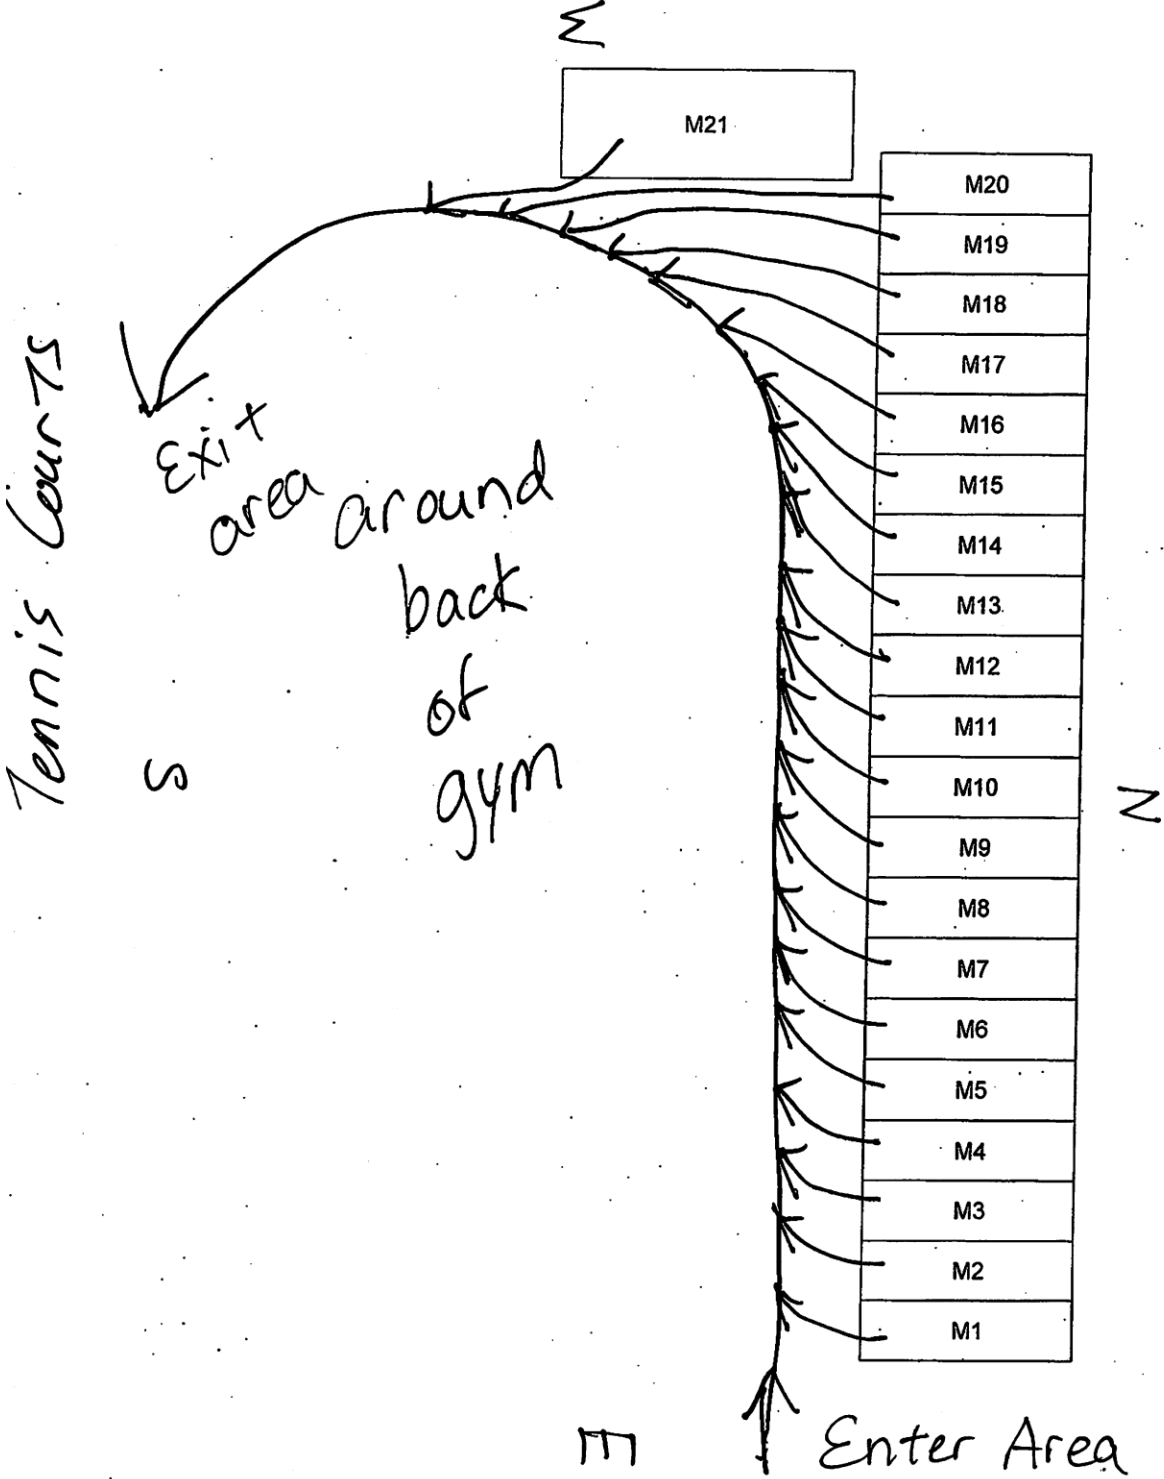 W
M21
M20
M19
M18
M17
M16
M15
M14
M13
M12
M11
M10
M9
M8
M7
M6
M5
M4
M3
M2
M1
N
Tennis Courts
S
Exit
area around
back
of
gym
E
Enter Area